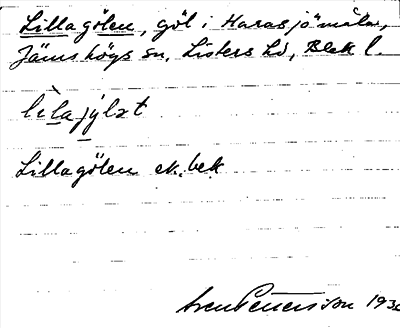 Lillagölen, göl i Harasjömåla,
Jämshögs sn, Listers hd, Blek l.
lìlajylət
Lillagölen ek. bek
Sven Pettersson 193